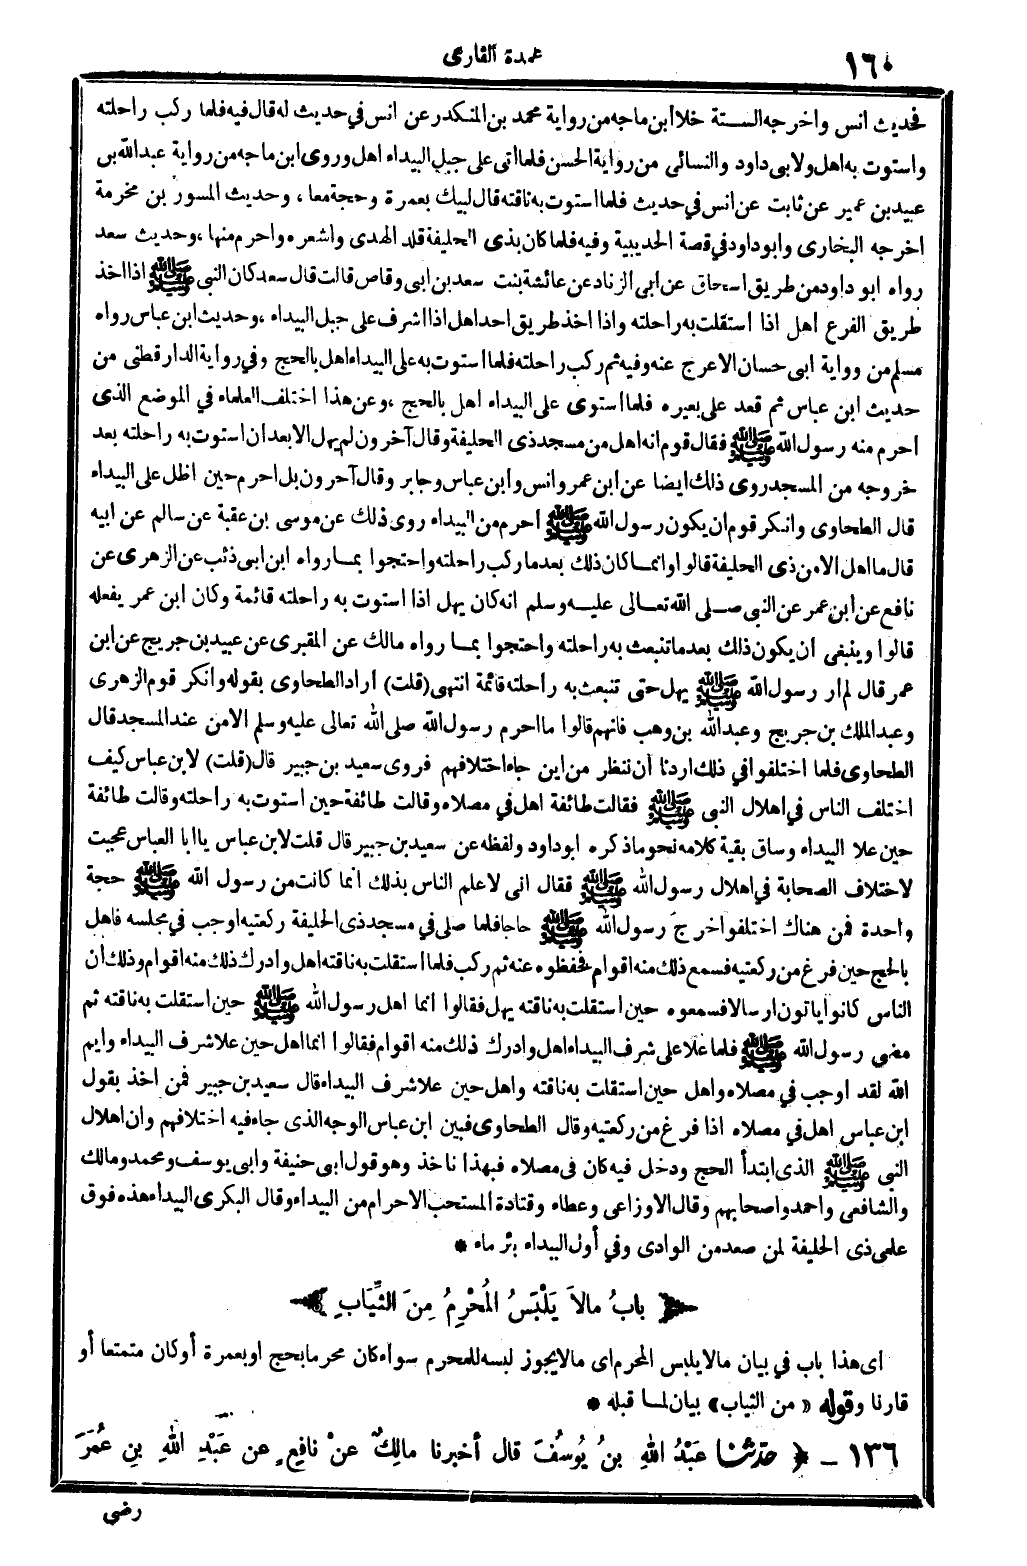 ١٦٠
عمدة القارى
فحديث انس واخرجه الستة خلا أبن ماجه من رواية محمد بن المنكدر عن انس في حديث له قال فيه فلما ركب راحلته
واستوت به اهل ولابى داود والنسائى من رواية الحسن فلما أتى على جبل البيداء اهل وروى ابن ماجه من رواية عبد الله بن
عبيد بن عمير عن ثابت عن انس في حديث فلما استوت به ناقته قال لبيك بعمرة وحجة معا ، وحديث المسور بن مخرمة
اخرجه البخارى وابو داود في قصة الحديبية وفيه فلما كان بذى الحليفة قلد الهدى واشعره واحرم منها ، وحديث سعد
رواه ابو داود من طريق اسحاق عن ابى الزناد عن عائشة بنت سعد بن ابى وقاص قالت قال سعد كان النبى ﷺ اذا اخذ
طريق الفرع اهل اذا استقلت به راحلته واذا اخذ طريق احد اهل اذا اشرف على جبل البيداء ، وحديث ابن عباس رواه
مسلم من وواية ابى حسان الاعرج عنه وفيه ثم ركب راحلته فلما استوت به على البيداء اهل بالحج وفي رواية الدارقطنى من
حديث ابن عباس ثم قعد على بعيره فلما استوى على البيداء اهل بالحج ، وعن هذا اختلف العلماء في الموضع الذى
أحرم منه رسول الله ﷺ فقال قوم انه اهل من مسجد ذى الحليفة وقال آخرون لم يهل الا بعد ان استوت به راحلته بعد
خروجه من المسجد روى ذلك ايضا عن ابن عمر وانس وابن عباس وجابر وقال آخرون بل احرم حين اظل على البيداء
قال الطحاوى وانكر قوم ان يكون رسول الله ﷺ أحرم من البيداء روى ذلك عن موسى بن عقبة عن سالم عن ابيه
قال ما اهل الا من ذى الحليفة قالوا وانما كان ذلك بعد ما ركب راحلته واحتجوا بما رواه ابن ابى ذئب عن الزهرى عن
نافع عن ابن عمر عن النبى صلى الله تعالى عليه وسلم انه كان يهل اذا استوت به راحلته قائمة وكان ابن عمر يفعله
قالوا وينبغى أن يكون ذلك بعد ما تنبعث به راحلته واحتجوا بما رواه مالك عن المقبرى عن عبيد بن جريج عن ابن
عمر قال لم ار رسول الله ﷺ يهل حتى تنبعث به راحلته قائمة انتهى (قلت) أراد الطحاوى بقوله وانكر قوم الزهرى
وعبد الملك بن جريج وعبد الله بن وهب فانهم قالوا ما احرم رسول الله صلى الله تعالى عليه وسلم الا من عند المسجد قال
الطحاوى فلما اختلفوا في ذلك اردنا أن ننظر من اين جاء اختلافهم فروى سعيد بن جبير قال (قلت) لابن عباس كيف
اختلف الناس في اهلال النبى ﷺ فقالت طائفة اهل في مصلاه وقالت طائفة حين استوت به راحلته وقالت طائفة
حين علا البيداء وساق بقية كلامه نحو ما ذكره ابو داود ولفظه عن سعيد بن جبير قال قلت لابن عباس يا ابا العباس عجبت
لاختلاف الصحابة في اهلال رسول الله ﷺ فقال انى لاعلم الناس بذلك انما كانت من رسول الله ﷺ حجة
واحدة فمن هناك اختلفوا خرج رسول الله ﷺ حاجا فلما صلى في مسجد ذى الحليفة ركعتيه اوجب في مجلسه فاهل
بالحج حين فرغ من ركعتيه فسمع ذلك منه اقوام فحفظوه عنه ثم ركب فلما استقلت به ناقته اهل وادرك ذلك منه اقوام وذلك أن
الناس كانوا يأتون ارسالا فسمعوه حين استقلت به ناقته يهل فقالوا انما اهل رسول الله ﷺ حين استقلت به ناقته ثم
مضى رسول الله ﷺ فلما علا على شرف البيداء اهل وادرك ذلك منه اقوام فقالوا انما اهل حين علا شرف البيداء وايم
الله لقد اوجب في مصلاه واهل حين استقلت به ناقته واهل حين علا شرف البيداء قال سعيد بن جبير فمن اخذ بقول
ابن عباس اهل في مصلاه اذا فرغ من ركعتيه وقال الطحاوى فبين ابن عباس الوجه الذى جاء فيه اختلافهم وان اهلال
النبى ﷺ الذى ابتدأ الحج ودخل فيه كان في مصلاه فبهذا ناخذ وهو قول ابى حنيفة وابى يوسف ومحمد ومالك
والشافعى واحمد واصحابهم وقال الاوزاعى وعطاء وقتادة المستحب الاحرام من البيداء وقال البكرى البيداء هذه فوق
علمى ذى الحليفة لمن صعد من الوادى وفي أول البيداء بئر ماء *
﴿ بابُ مالاَ يَلْبَسُ الُمحْرِمُ مِنَ الثِّيَابِ ﴾
اى هذا باب في بيان مالا يلبس المحرم اى مالا يجوز لبسه للمحرم سواء كان محرما بحج او بعمرة أو كان متمتعا أو
قارنا وقوله « من الثياب » بيان لما قبله *
١٣٦ – ﴿ حدثنا عَبْدُ اللهِ بنُ يُوسُفَ قال أخبرنا مالِكٌ عنْ نافِعٍ عن عَبْدِ اللهِ بنِ عُمَرَ
رضى